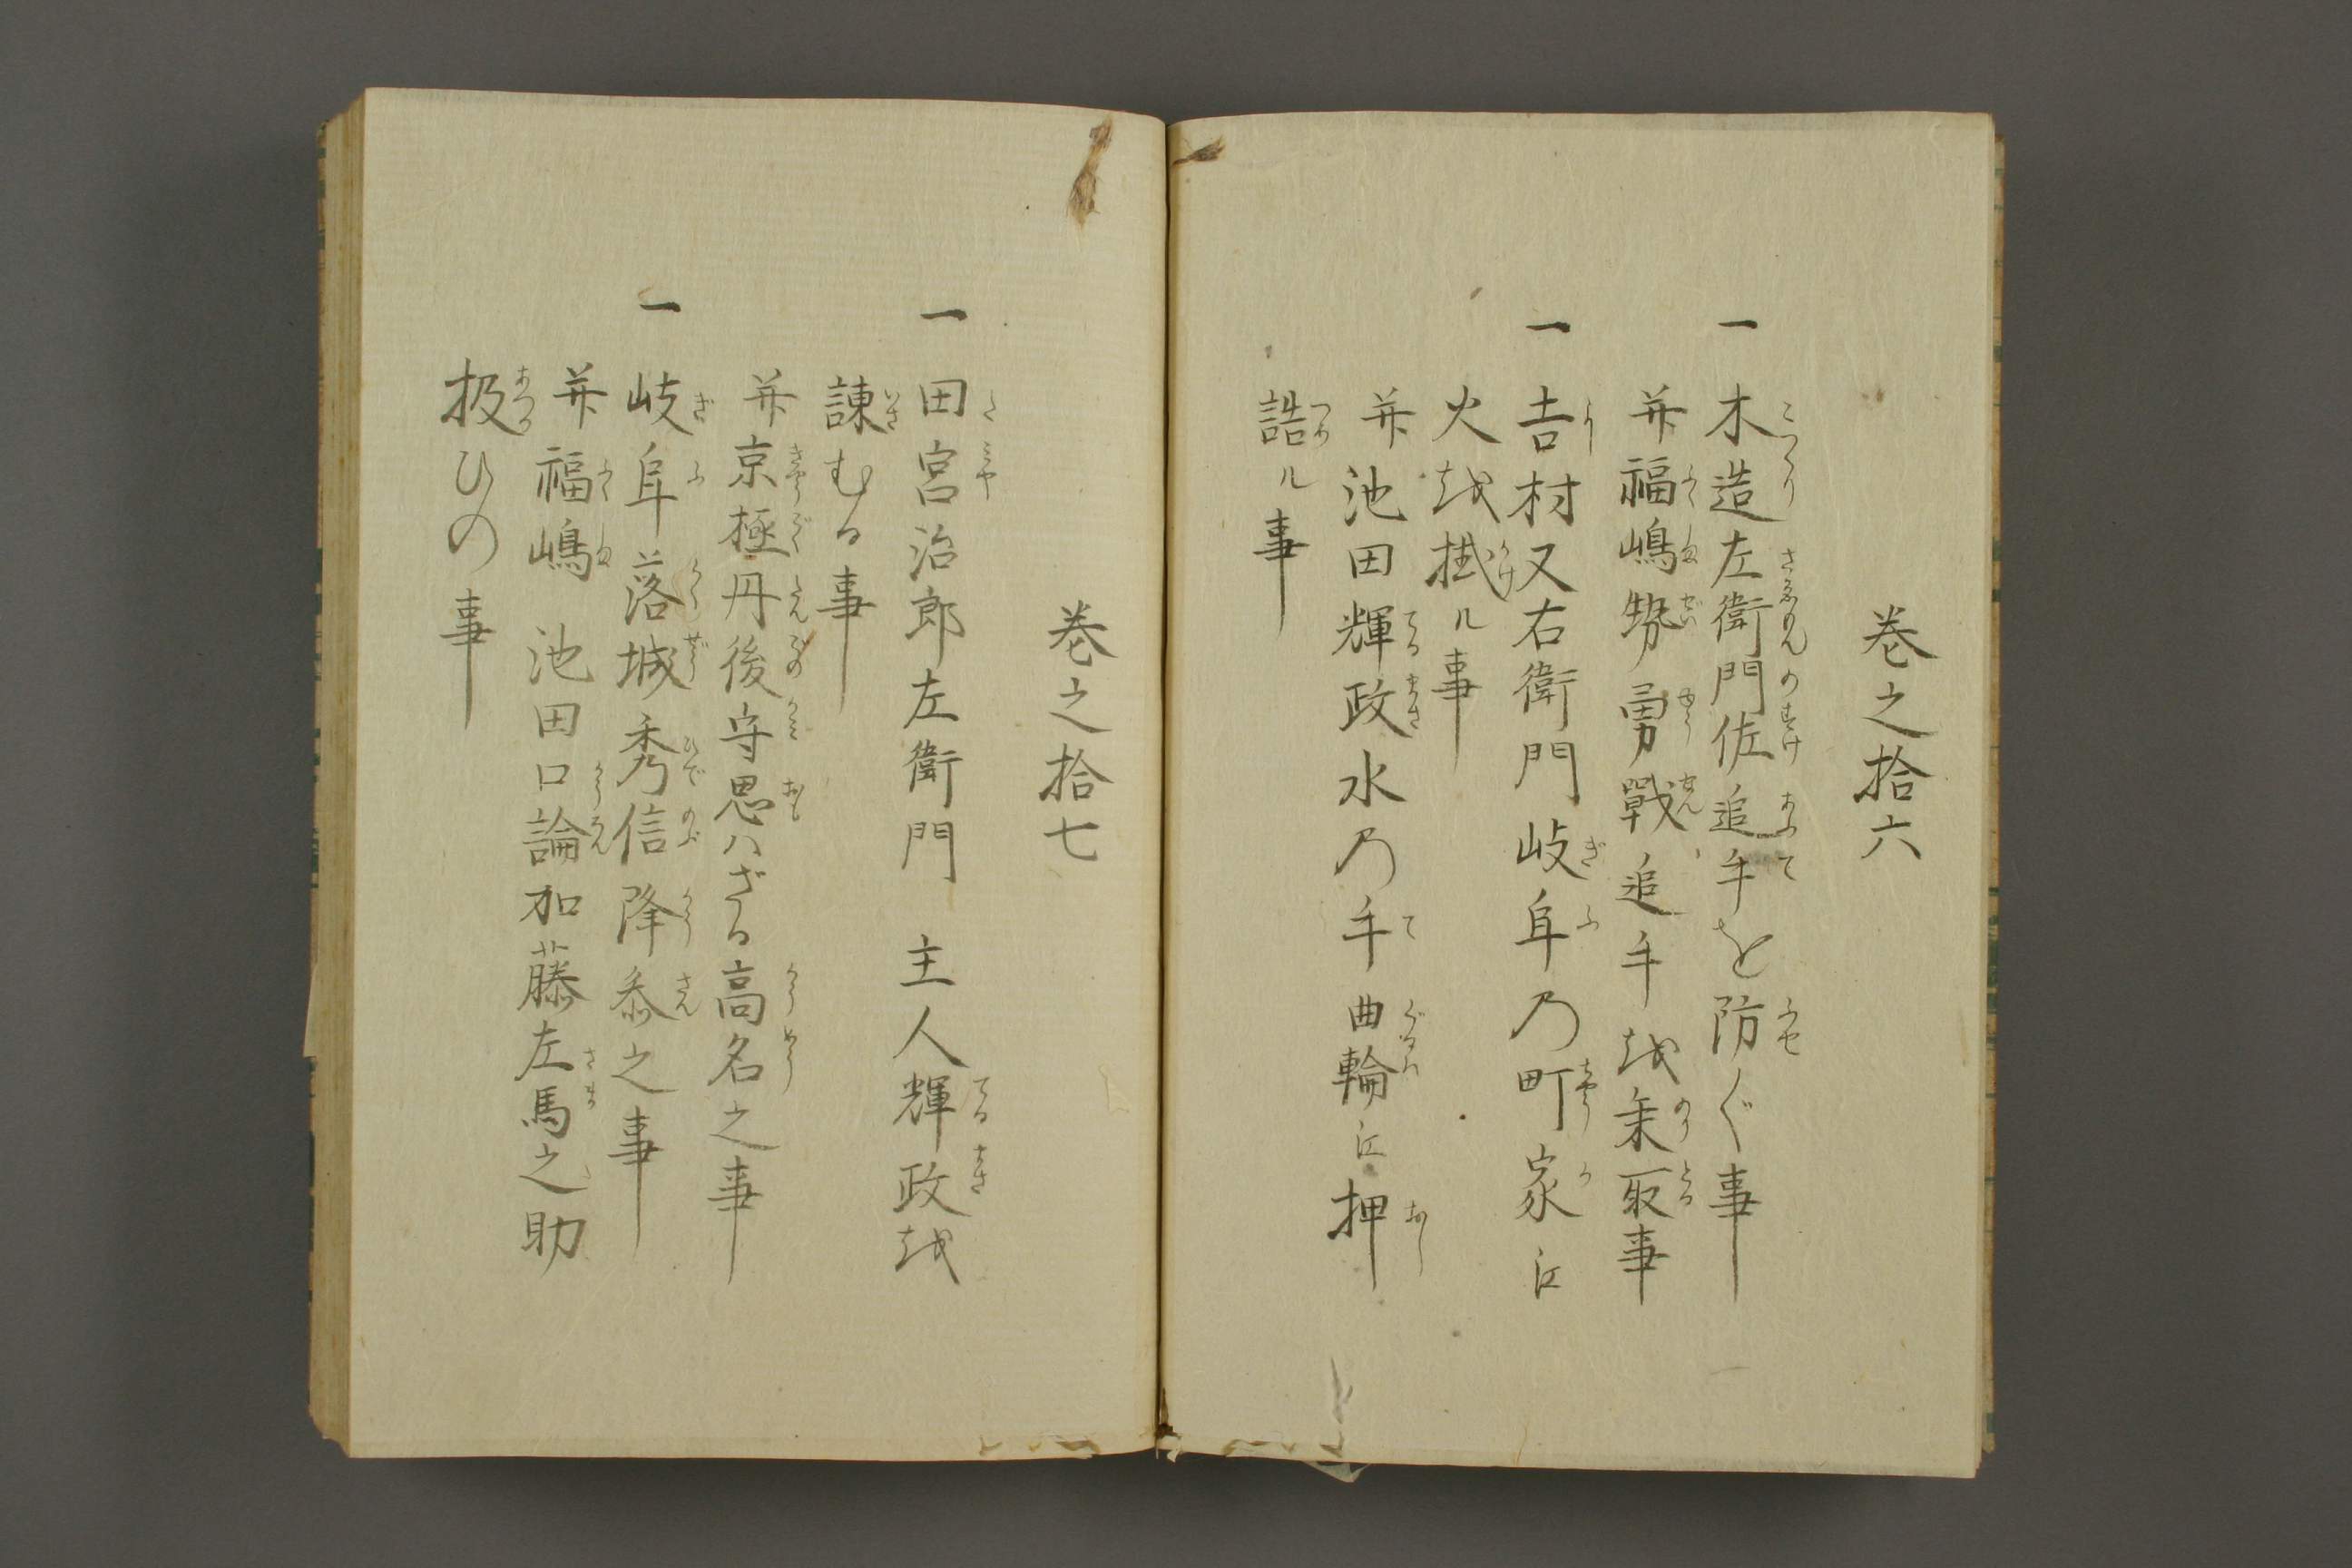 巻之拾六
一木造左衛門佐追手を防ぐ事
并福嶋勢勇戰追手越乗取事
一吉村又右衛門岐阜乃町家江
火越掛ル事
并池田輝政水乃手曲輪江押
詰ル事
巻之拾七
一田宮治郎左衛門 主人輝政越
諌むる事
并京極丹後守思ハざる高名之事
一岐阜落城秀信降参之事
并福嶋 池田口論加藤左馬之助
扱ひの事